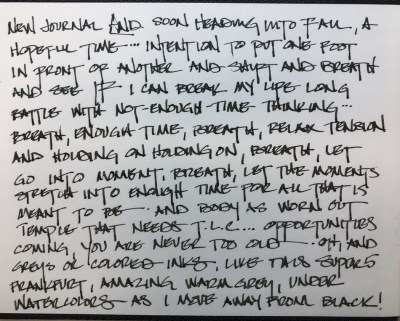 NEW JOURNAL AND SOON HEADING INTO FALL, A
HOPEFUL TIME.... INTENTION TO PUT ONE FOOT
IN FRONT OF ANOTHER AND SHIFT AND BREATH
AND SEE IF I CAN BREAK MY LIFE LONG
BATTLE WITH NOT-ENOUGH-TIME THINKING...
BREATH, ENOUGH TIME, BREATH, RELAX TENSION
AND HOLDING ON HOLDING ON, BREATH, LET
GO INTO MOMENT, BREATH, LET THE MOMENTS
STRETCH INTO ENOUGH TIME FOR ALL THAT IS
MEANT TO BE... AND BODY AS WORN OUT
TEMPLE THAT NEEDS T.L.C... OPPORTUNITIES
COMING, YOU ARE NEVER TOO OLD.... OH, AND
GREYS OR COLORED INKS, LIKE THIS SUPER5
FRANKFURT, AMAZING WARM GREY, UNDER
WATERCOLORS AS I MOVE AWAY FROM BLACK!